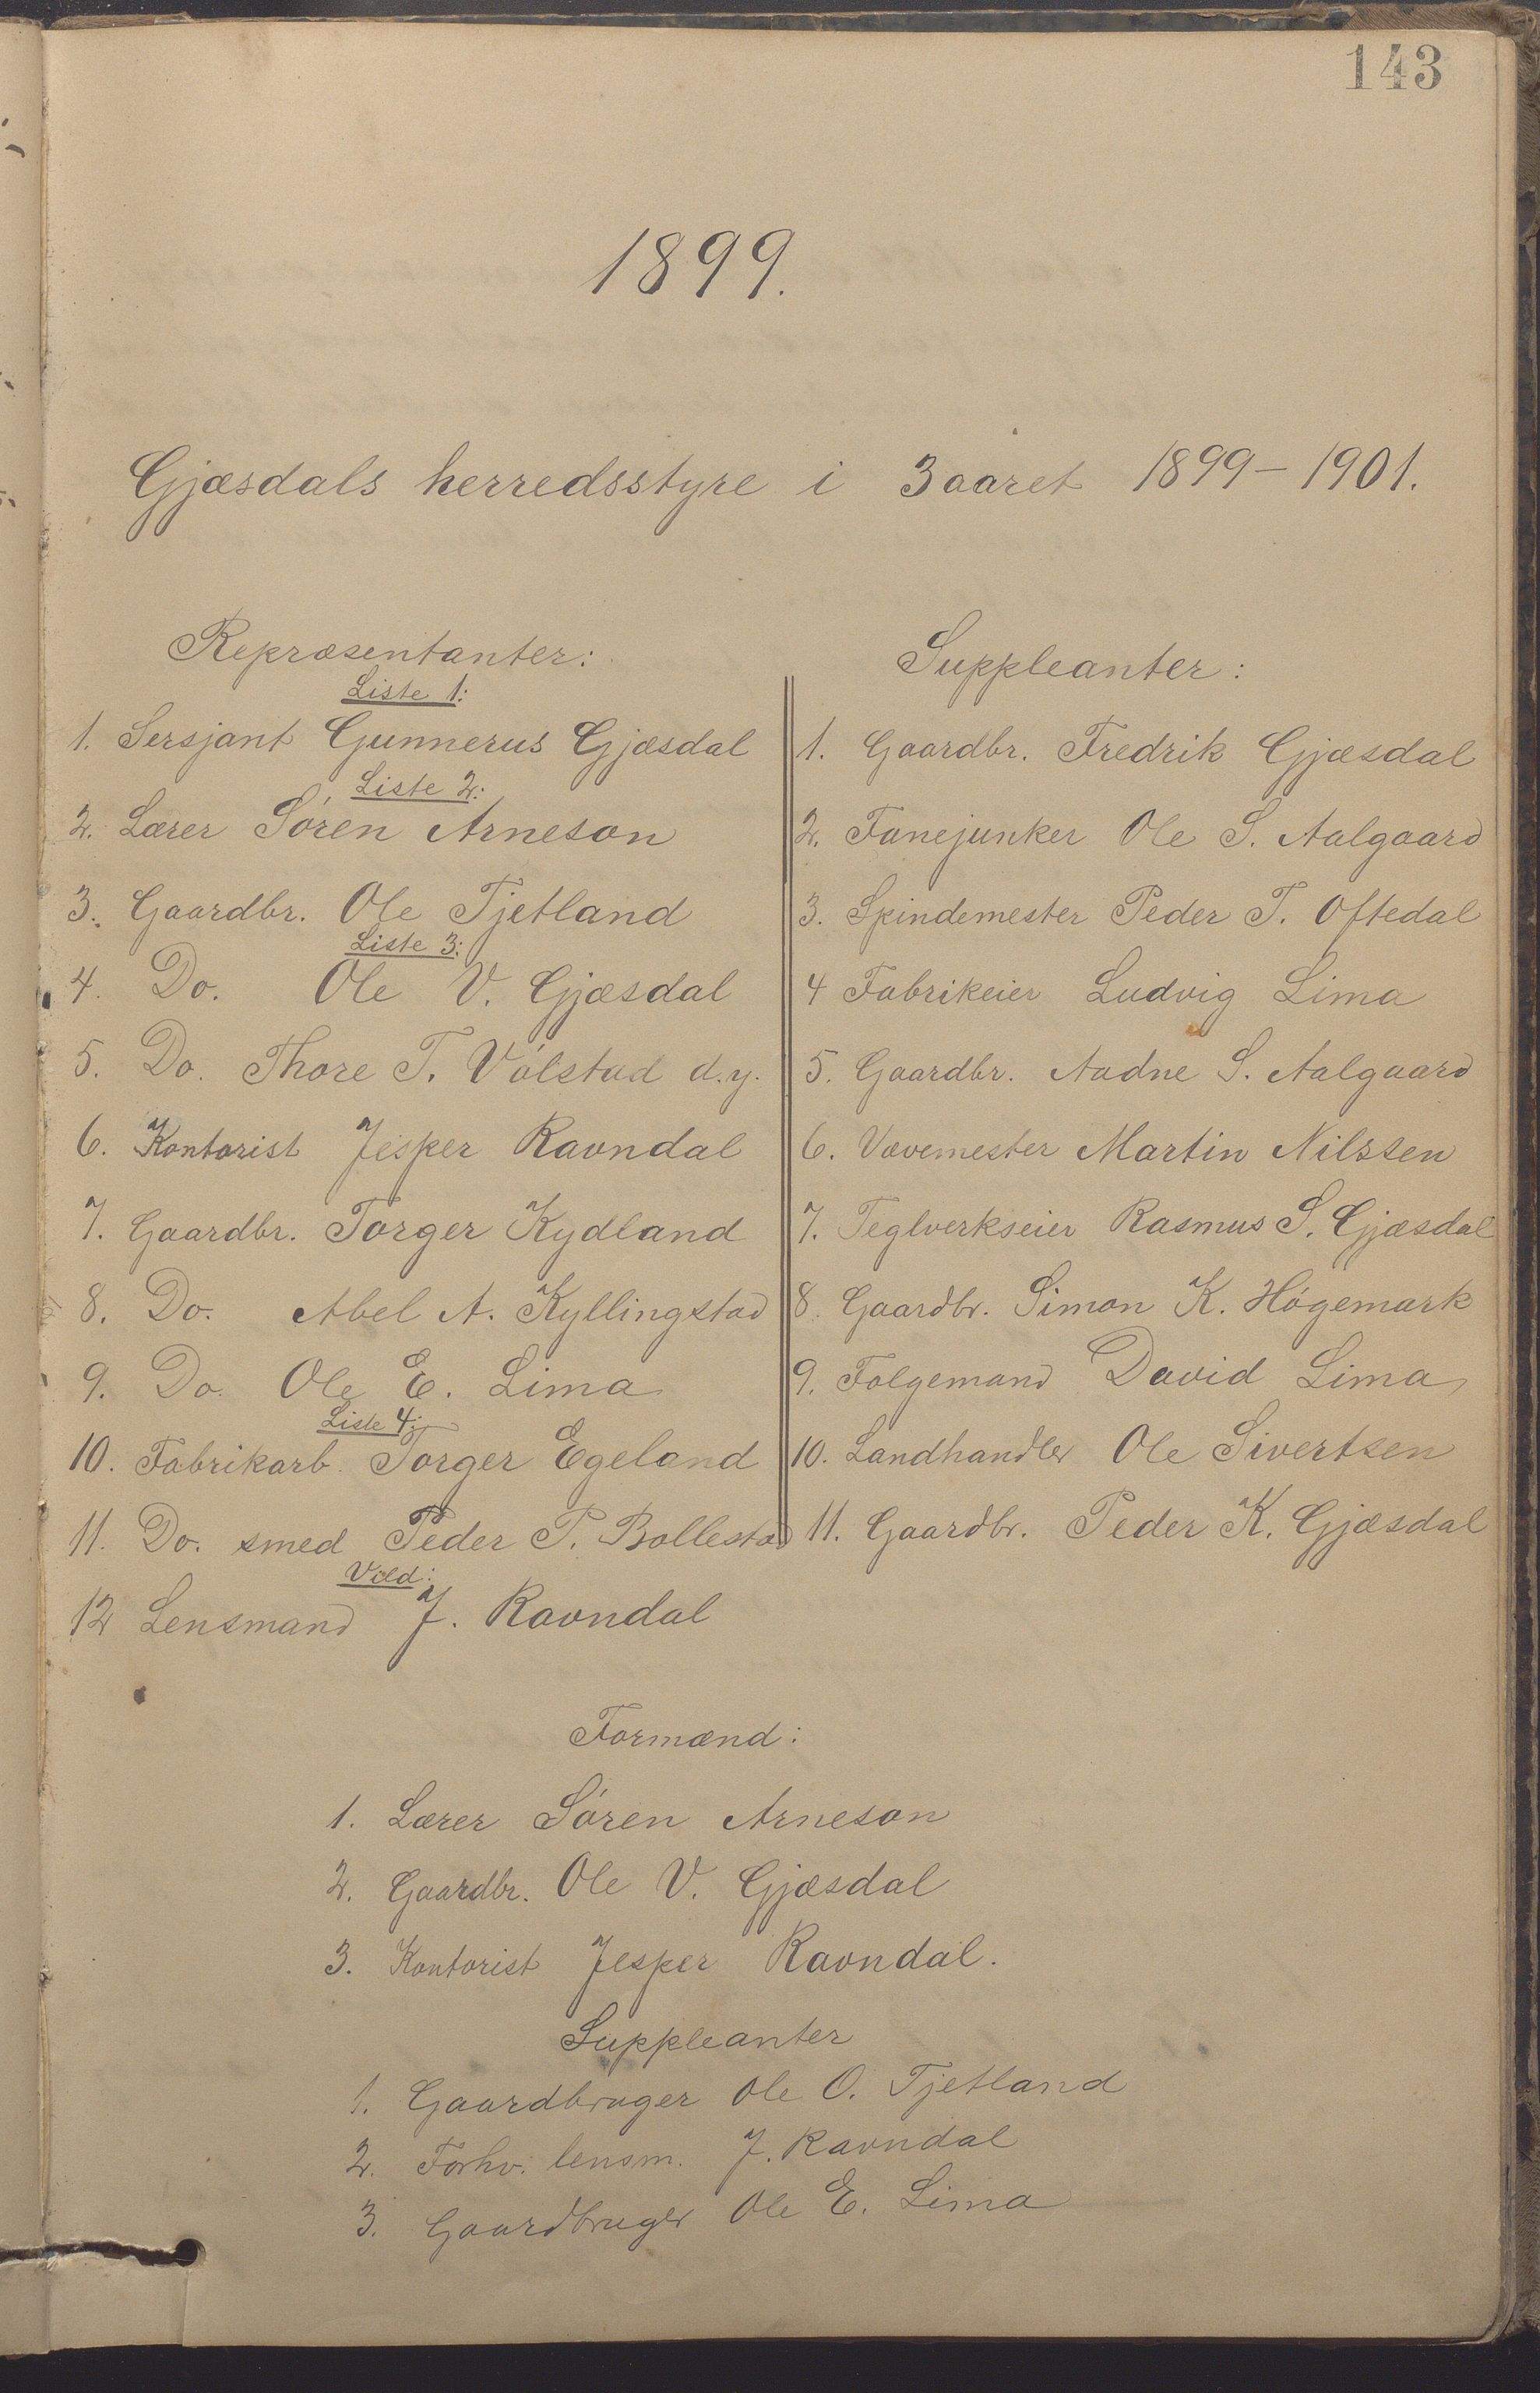 143
1899.
Gjæsdals herredsstyre i 3 aaret 1899–1901.
Repræsentanter:
Liste 1:
1. Sersjant Gunnerus Gjæsdal
Liste 2:
2. Lærer Sören Arneson
3. Gaardbr. Ole Tjetland
Liste 3:
4. Do. Ole V. Gjæsdal
5. Do. Thore T. Völstad d.y.
6. Kontorist Jesper Ravndal
7. Gaardbr. Torger Kydland
8. Do. Abel A. Kyllingstad
9. Do. Ole E. Lima
Liste 4:
10. Fabrikarb. Torger Egeland
11. Do. smed Peder P. Bollestad
Vild:
12 Lensmand J. Ravndal
Suppleanter:
1. Gaardbr. Fredrik Gjæsdal
2. Fanejunker Ole S. Aalgaard
3. Spindemester Peder T. Oftedal
4 Fabrikeier Ludvig Lima
5. Gaardbr. Aadne S. Aalgaard
6. Vævemester Martin Nilssen
7. Teglverkseier Rasmus S. Gjæsdal
8. Gaardbr. Simon K. Högemark
9. Folgemand David Lima
10. Landhandler Ole Sivertsen
11. Gaardbr. Peder K. Gjæsdal
Formænd:
1. Lærer Sören Arneson
2. Gaardbr. Ole V. Gjæsdal
3. Kontorist Jesper Ravndal.
Suppleanter
1. Gaardbruger Ole O. Tjetland
2. Forhv. lensm. J. Ravndal
3. Gaardbruger Ole E. Lima